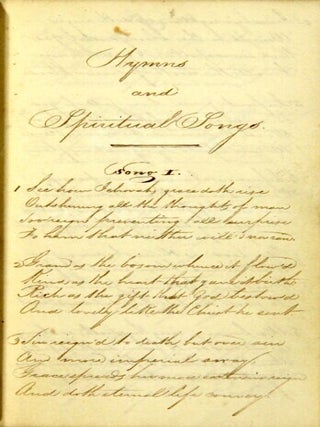 Hymns
and
Spiritual Songs.
Song I.
1 See how Jehovah's grace doth rise
Outshining all the thoughts of man
Sovereign preventing all surprise
To them that neither will nor can.
2 Grand as the bosom whence it flow'd
Kind as the heart that gave it birth
Rich as the gift that God bestow'd
And lovely like the Christ he sent
3 Sin reign'd to death, but over sin
And more imperial sway
Grace spreads
And doth eternal life convey.